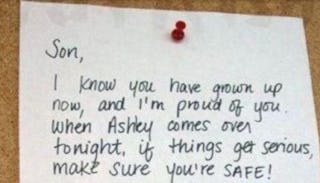 Son,
I know you have grown up
now, and I'm proud of you.
When Ashley comes over
tonight, if things get serious,
make sure you're SAFE!